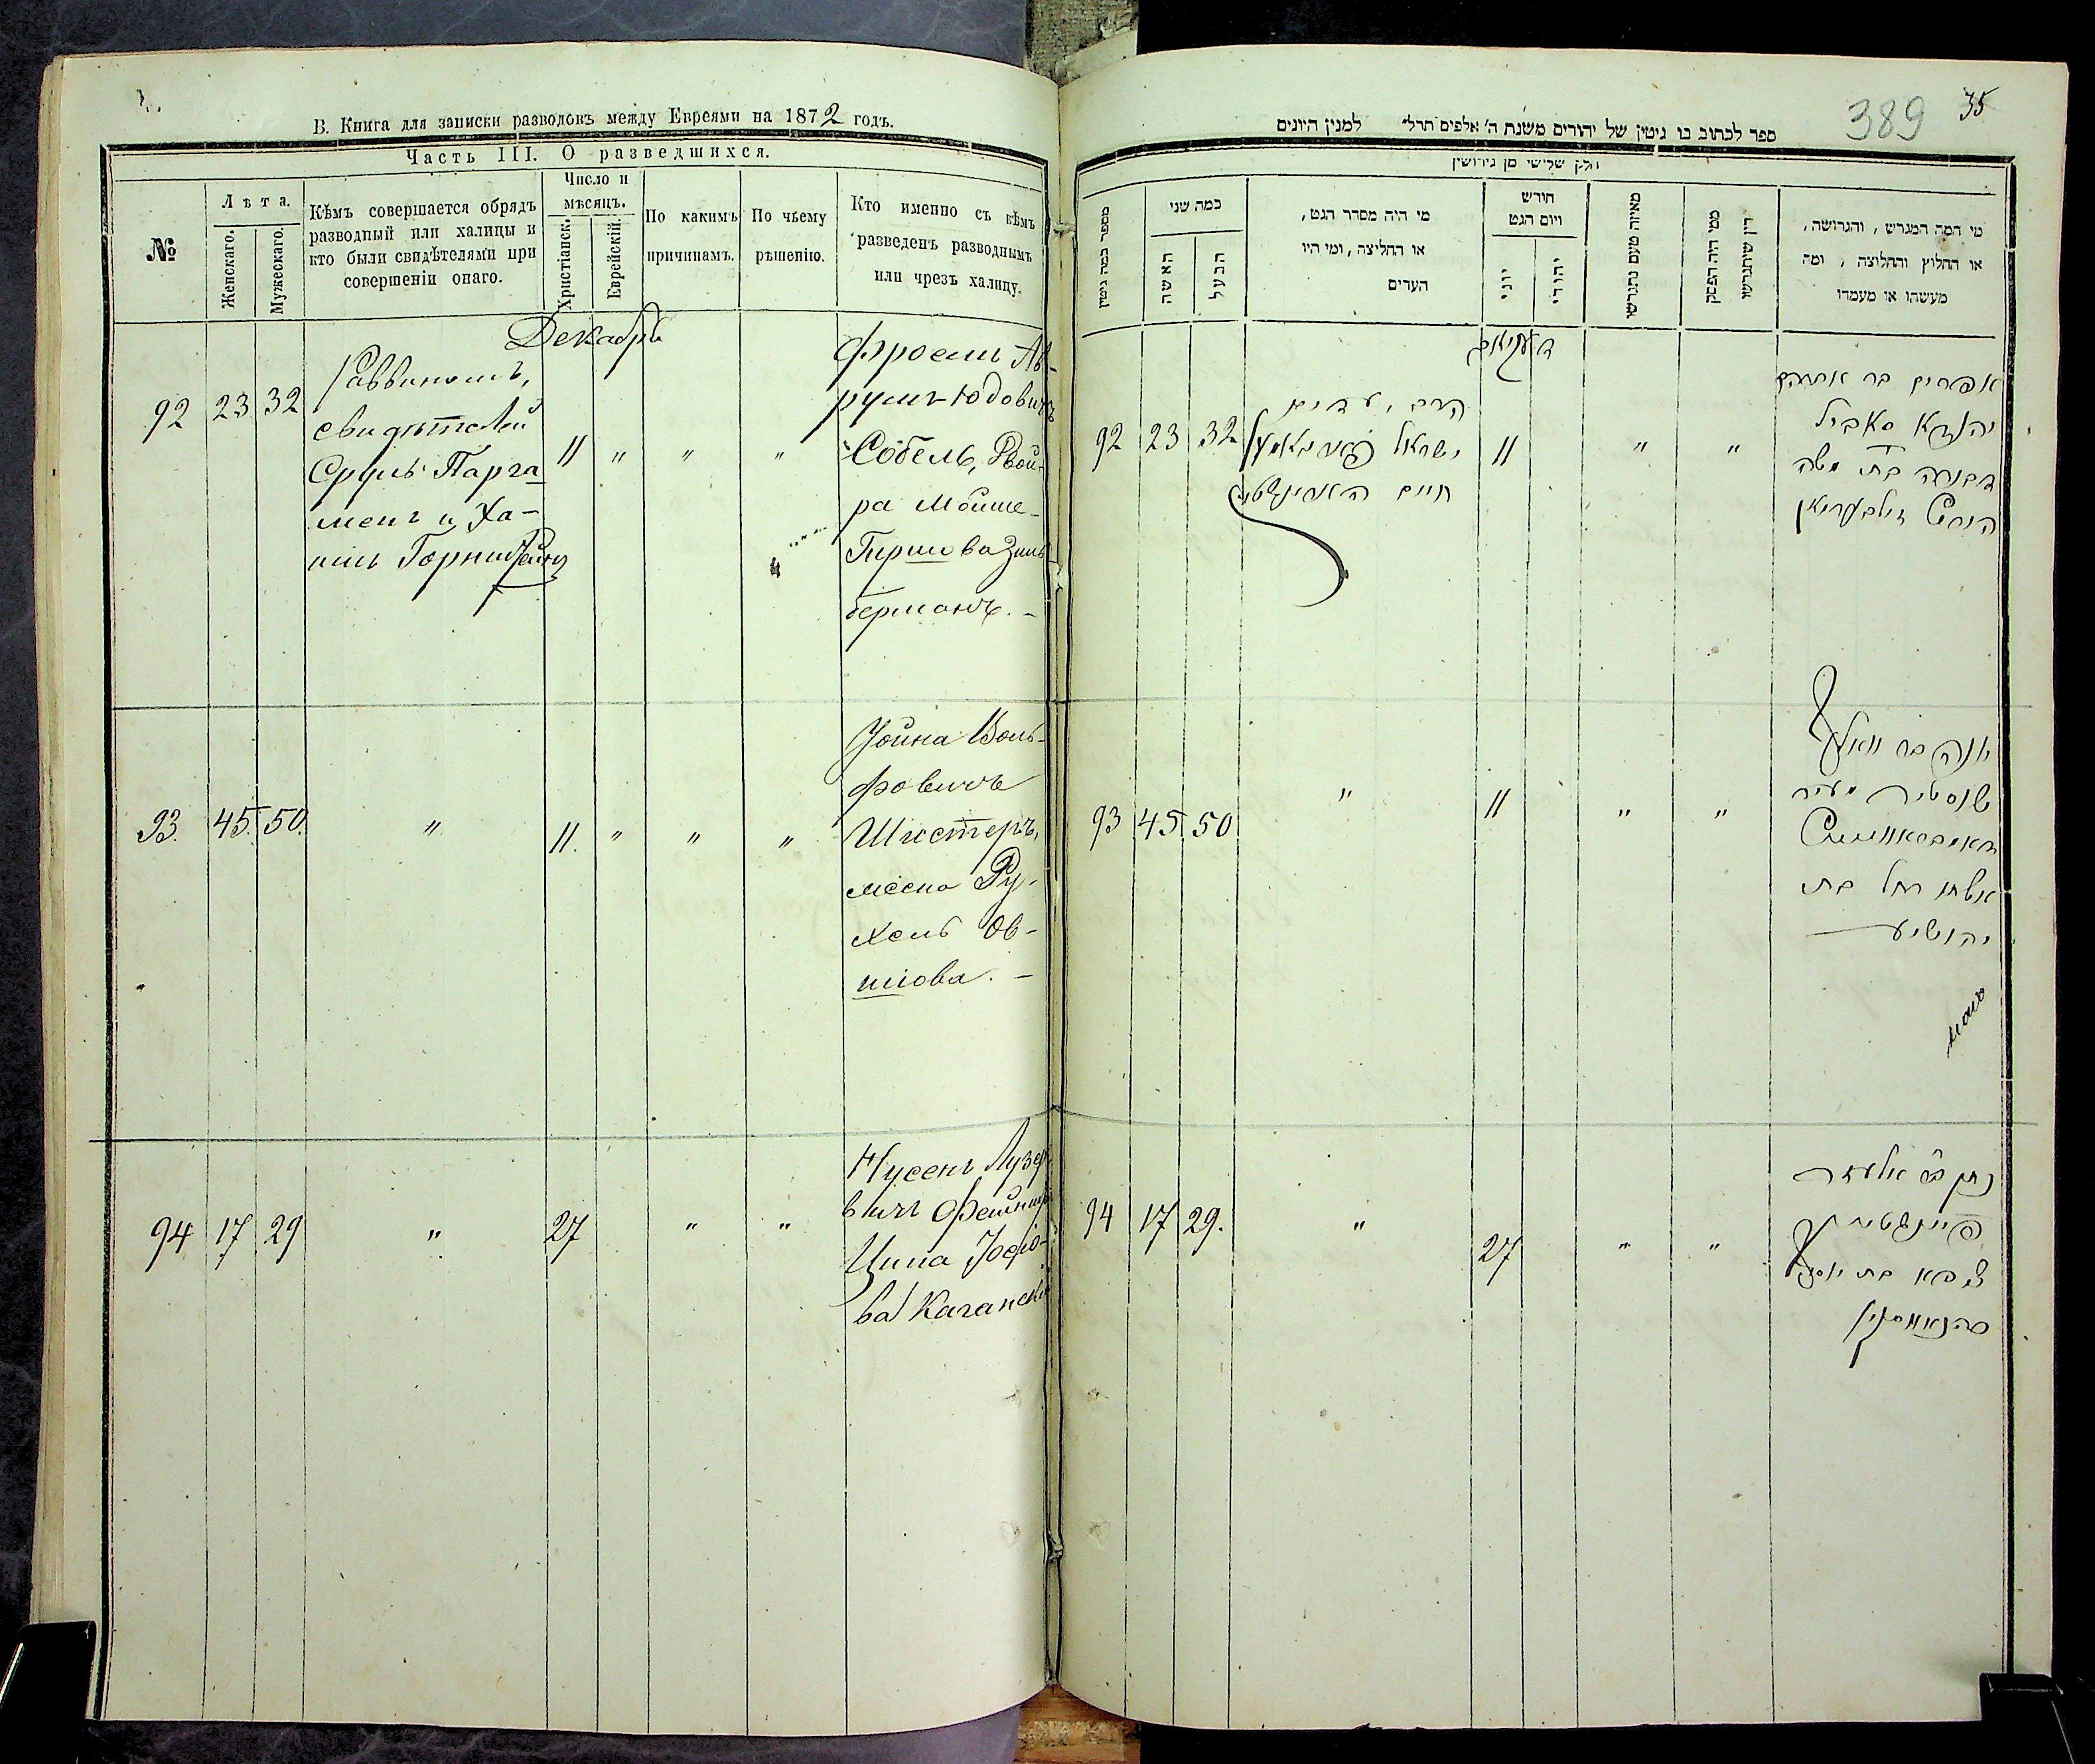 В. Книга для записки разводовъ между Евреями на 1872 годъ.
Часть III. О разведшихся.
№
Лѣта.
Женскаго.
Мужескаго.
Кѣмъ совершается обрядъ
разводный или халицы и
кто были свидѣтелями при
совершеніи онаго.
Число и
мѣсяцъ.
Христіанск.
Еврейскій.
По какимъ
причинамъ.
По чьему
рѣшенію.
Кто именно съ кѣмъ
разведенъ разводнымъ
или чрезъ халицу.
Декабрь
92 23 32
Раввиномъ,
свидѣтелей
Сруль Парга
менъ и Ха-
11 " " "
Фроемъ Ав-
румъ-Юдовичъ
Соболь, Двой-
ра Мойше-
Гиршова Зиль
берманъ. -
93. 45. 50. " 11. " " "
Іойна Воль-
фовичъ
Шистеръ,
Ру-
хель Ов-
шіова. -
94 17 29 " 27 " "
Нусенъ Лузе
вичъ
Ципа Іосіо-
ва
389 35
ספר לכתוב בו גיטין של יהודים משנת ה' אלפים תרל" למנין היונים
חלק שלישי מן גירושין
מספר כמה גיטין
כמה שני
האשה
הבעל
מי היה מסדר הגט,
או החליצה, ומי היו
העדים
חודש
ויום הגט
יוני
יהודי
מאיזה טעם נתגרשו
ממי היה הפסק
דין שיתגרשו
מי המה המגרש, והגרושה,
או החלוץ והחליצה, ומה
מעשהו או מעמדו
92 23 32
הרב, עדים
ישראל
חיים
11 " "
אפרים בר אברהם
יהודא סאביל
דבורה בת משה
הירש זילבערמאן
93 45 50 " 11 " "
יונה בר וואלף
שוסטער
אשתו רחל בת
יהושיע
94 17 29. " 27 " "
נתן בר אלעזר
ציפא בת יוסף